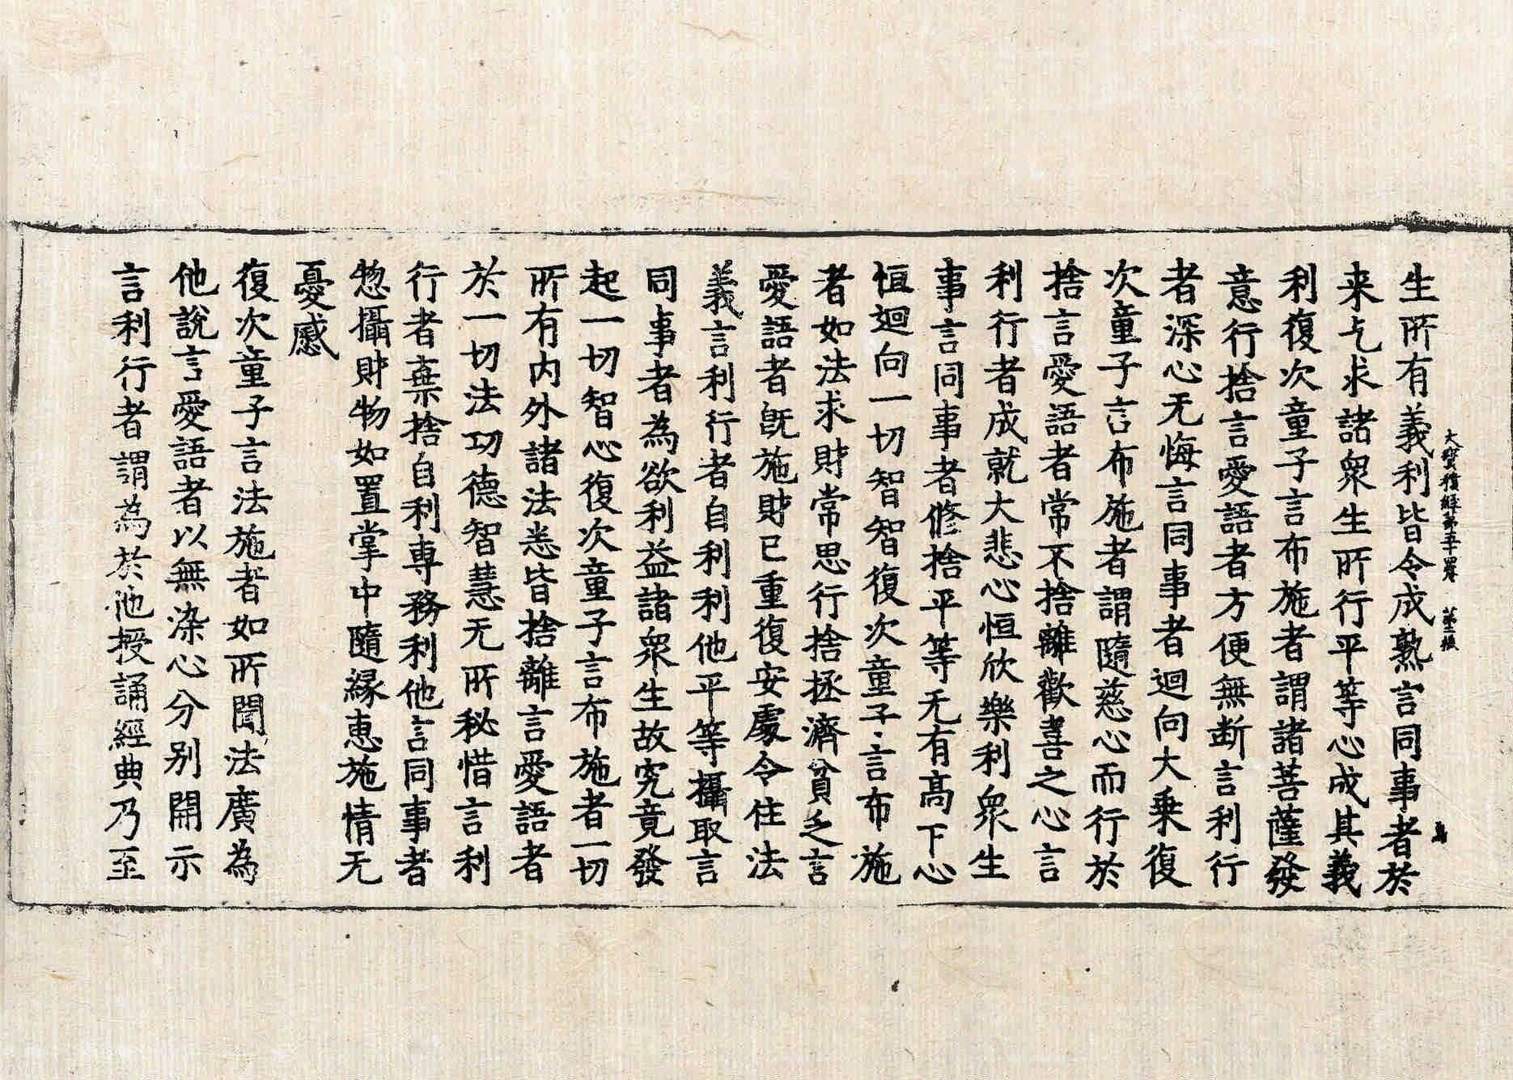 大寶積經第五十四卷 第二張
生所有義利皆令成熟言同事者於
来乞求諸衆生所行平等心成其義
利復次童子言布施者謂諸菩薩發
意行捨言愛語者方便無断言利行
者深心无悔言同事者迴向大乗復
次童子言布施者謂隨慈心而行於
捨言愛語者常不捨離歡喜之心言
利行者成就大悲心恒欣樂利衆生
事言同事者修捨平等无有高下心
恒迴向一切智智復次童子言布施
者如法求財常思行捨拯濟貧乏言
愛語者旣施財已重復安處令住法
義言利行者自利利他平等攝取言
同事者為欲利益諸衆生故究竟發
起一切智心復次童子言布施者一切
所有内外諸法悉皆捨離言愛語者
於一切法功德智慧无所秘惜言利
行者棄捨自利専務利他言同事者
惣攝財物如置掌中隨縁惠施情无
憂慼
復次童子言法施者如所聞法廣為
他説言愛語者以無染心分别開示
言利行者謂為於他授誦經典乃至